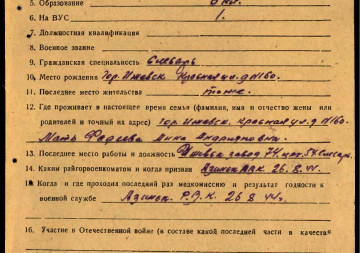 5. Образование 6 кл.
6. На ВУС 1.
7. Должностная квалификация
8. Военное звание
9. Гражданская специальность Слесарь
10. Место рождения гор. Ижевск Красная ул. д №160.
11. Последнее место жительства тоже.
12. Где проживает в настоящее время семья (фамилия, имя и отчество жены или
родителей и точный на адрес) гор. Ижевск, Красная ул. д №160.
Мать Фадеева Анна Андрияновна.
13. Последнее место работы и должность Ижевск завод 74 цех 54 Слесарь
14. Каким райгорвоенкоматом и когда призван Азинск 26.8.44.
15. Когда и где проходил последний раз медкомиссию и результат годности к
военной службе Азинск. Р.В.К. 26 8 44 г.
16. Участие в Отечественной войне (в составе какой последней части в качестве